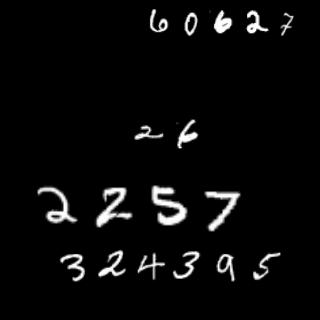 60627
26
2257
324395